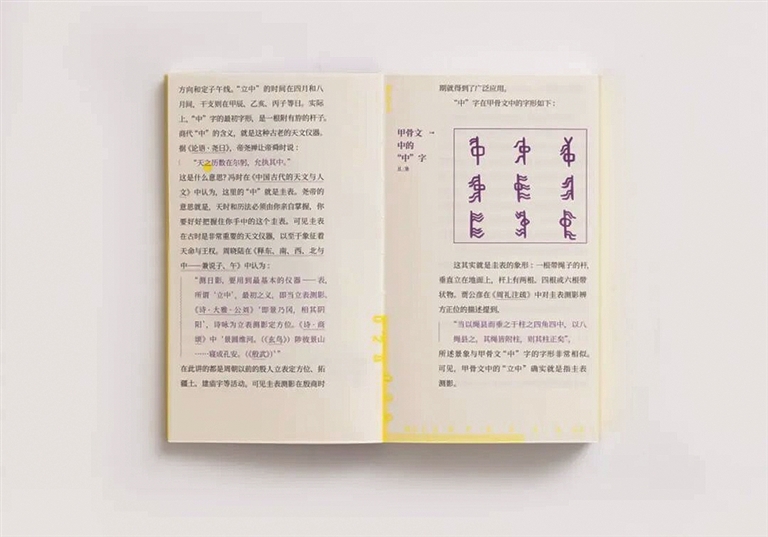 方向和定子午线。“立中”的时间在四月和八
月间，干支则在甲辰、乙亥、丙子等日。实际
上，“中”字的最初字形，是一根附有斿的杆子。
商代“中”的含义，就是这种古老的天文仪器。
据《论语·尧曰》，帝尧禅让帝舜时说：
“天之历数在尔躬，允执其中。”
这是什么意思？冯时在《中国古代的天文与人
文》中认为，这里的“中”就是圭表。尧帝的
意思就是，天时和历法必须由你亲自掌握，你
要好好把握住你手中的这个圭表。可见圭表
在古时是非常重要的天文仪器，以至于象征着
天命与王权。周晓陆在《释东、南、西、北与
中——兼说子、午》中认为：
“测日影，要用到最基本的仪器——表，
所谓‘立中’，最初之义，即当立表测影，
《诗·大雅·公刘》‘即景乃冈，相其阴
阳’，诗咏为立表测影定方位。《诗·商
颂》中‘景圆维河。（《玄鸟》）陟彼景山
——寝成孔安。（《殷武》）’”
在此讲的都是周朝以前的殷人立表定方位、拓
疆土、建庙宇等活动，可见圭表测影在殷商时
期就得到了广泛应用。
“中”字在甲骨文中的字形如下：
甲骨文 →
中的
“中”字
这其实就是圭表的象形：一根带绳子的杆，
垂直立在地面上，杆上有两根、四根或六根带
状物。贾公彦在《周礼注疏》中对圭表测影辨
方正位的描述提到，
“当以绳县而垂之于柱之四角四中，以八
绳县之，其绳皆附柱，则其柱正矣”，
所述景象与甲骨文“中”字的字形非常相似。
可见，甲骨文中的“立中”确实就是指圭表
测影。